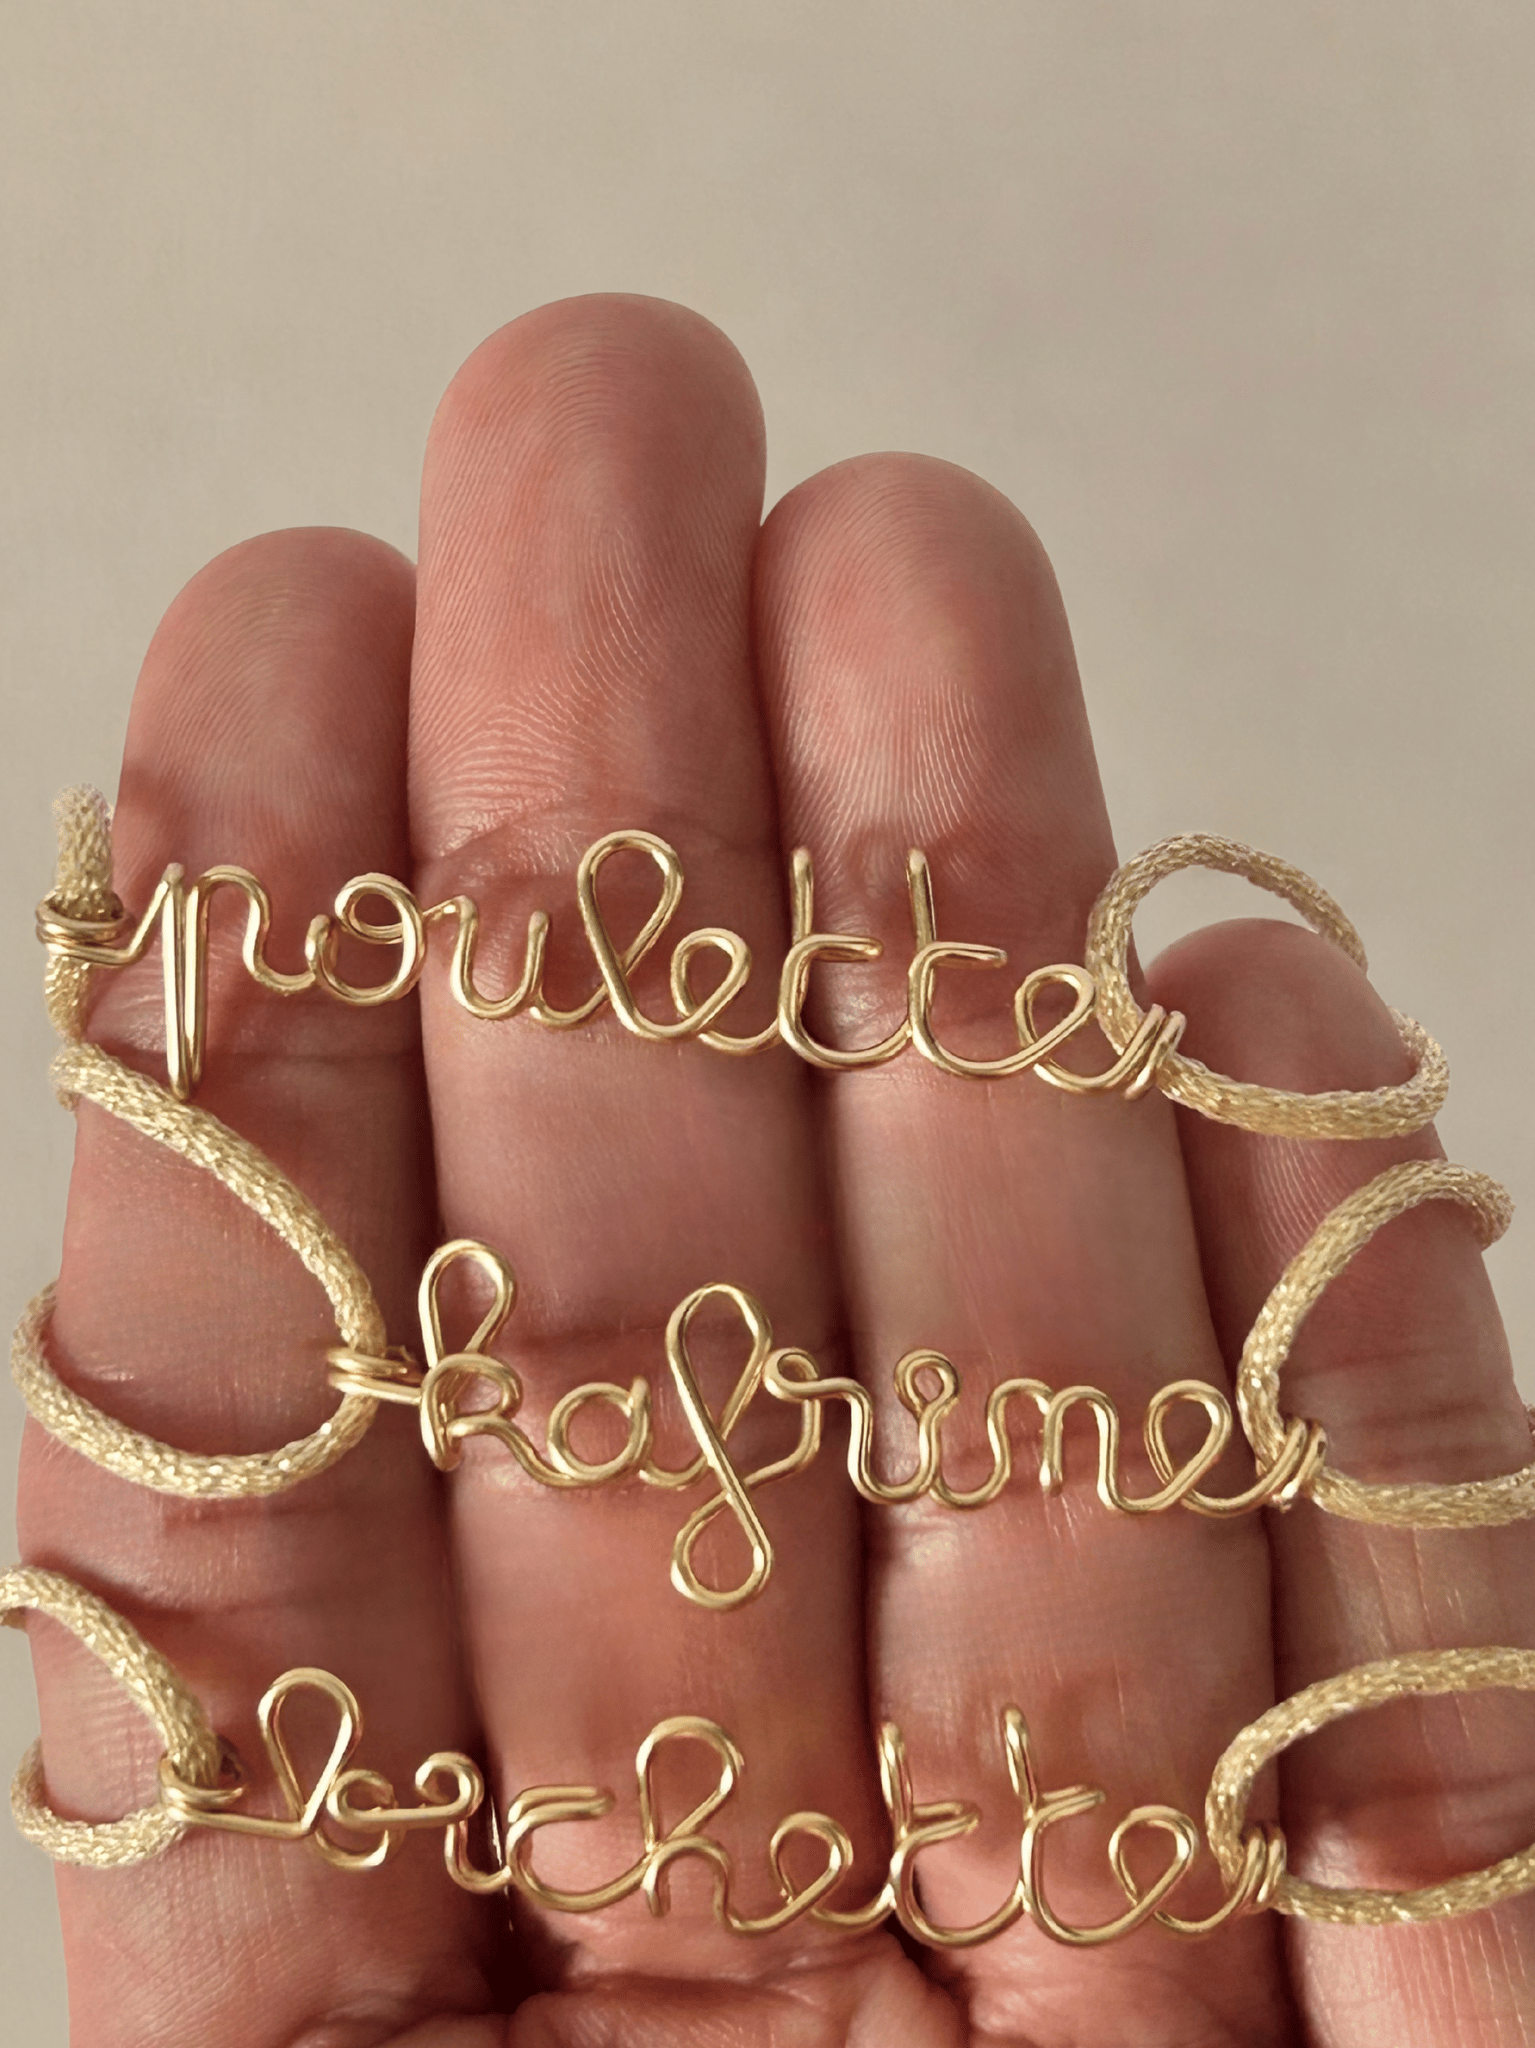 poulette
kafrine
brchette